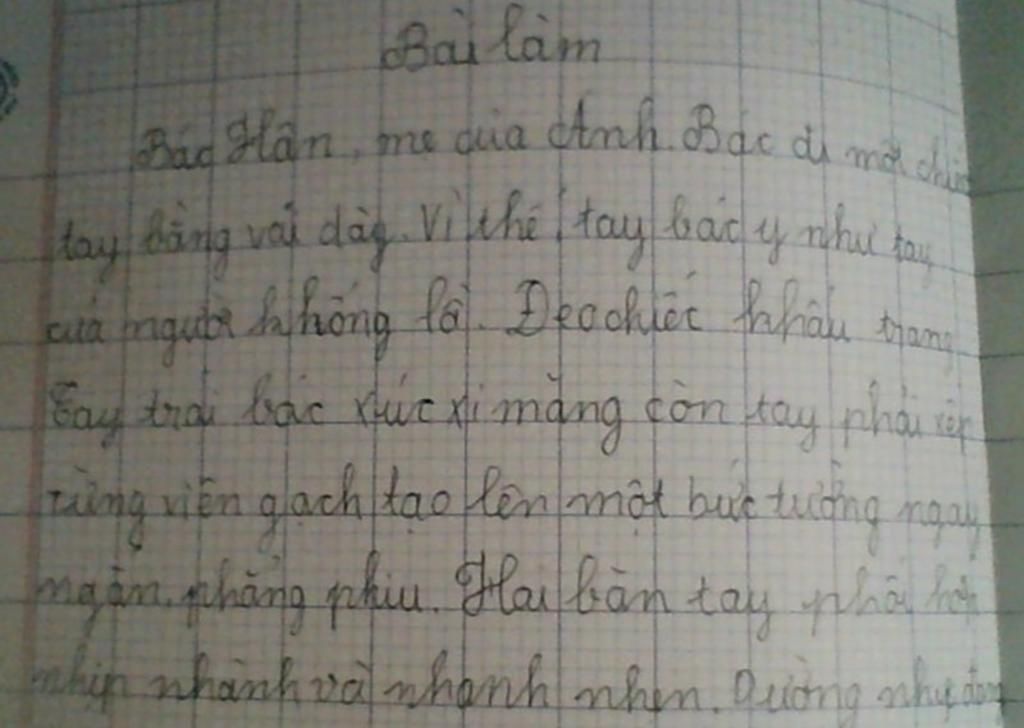 Bài làm
Bác Hân, mẹ của Anh. Bác đi một
tay bằng vải dày. Vì thế, tay bác y như tay
của người khổng lồ. Đeo chiếc khẩu trang
Tay trái bác xúc xi măng còn tay phải xếp
từng viên gạch tạo lên một bức tường ngay
ngắn, phẳng phiu. Hai bàn tay phối hợp
nhịp nhành và nhanh nhẹn. Dường như